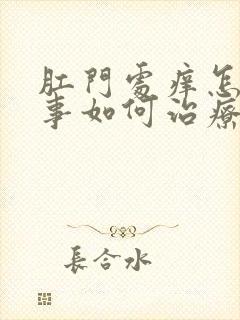 肛門處痒怎
事如何治療
長合水